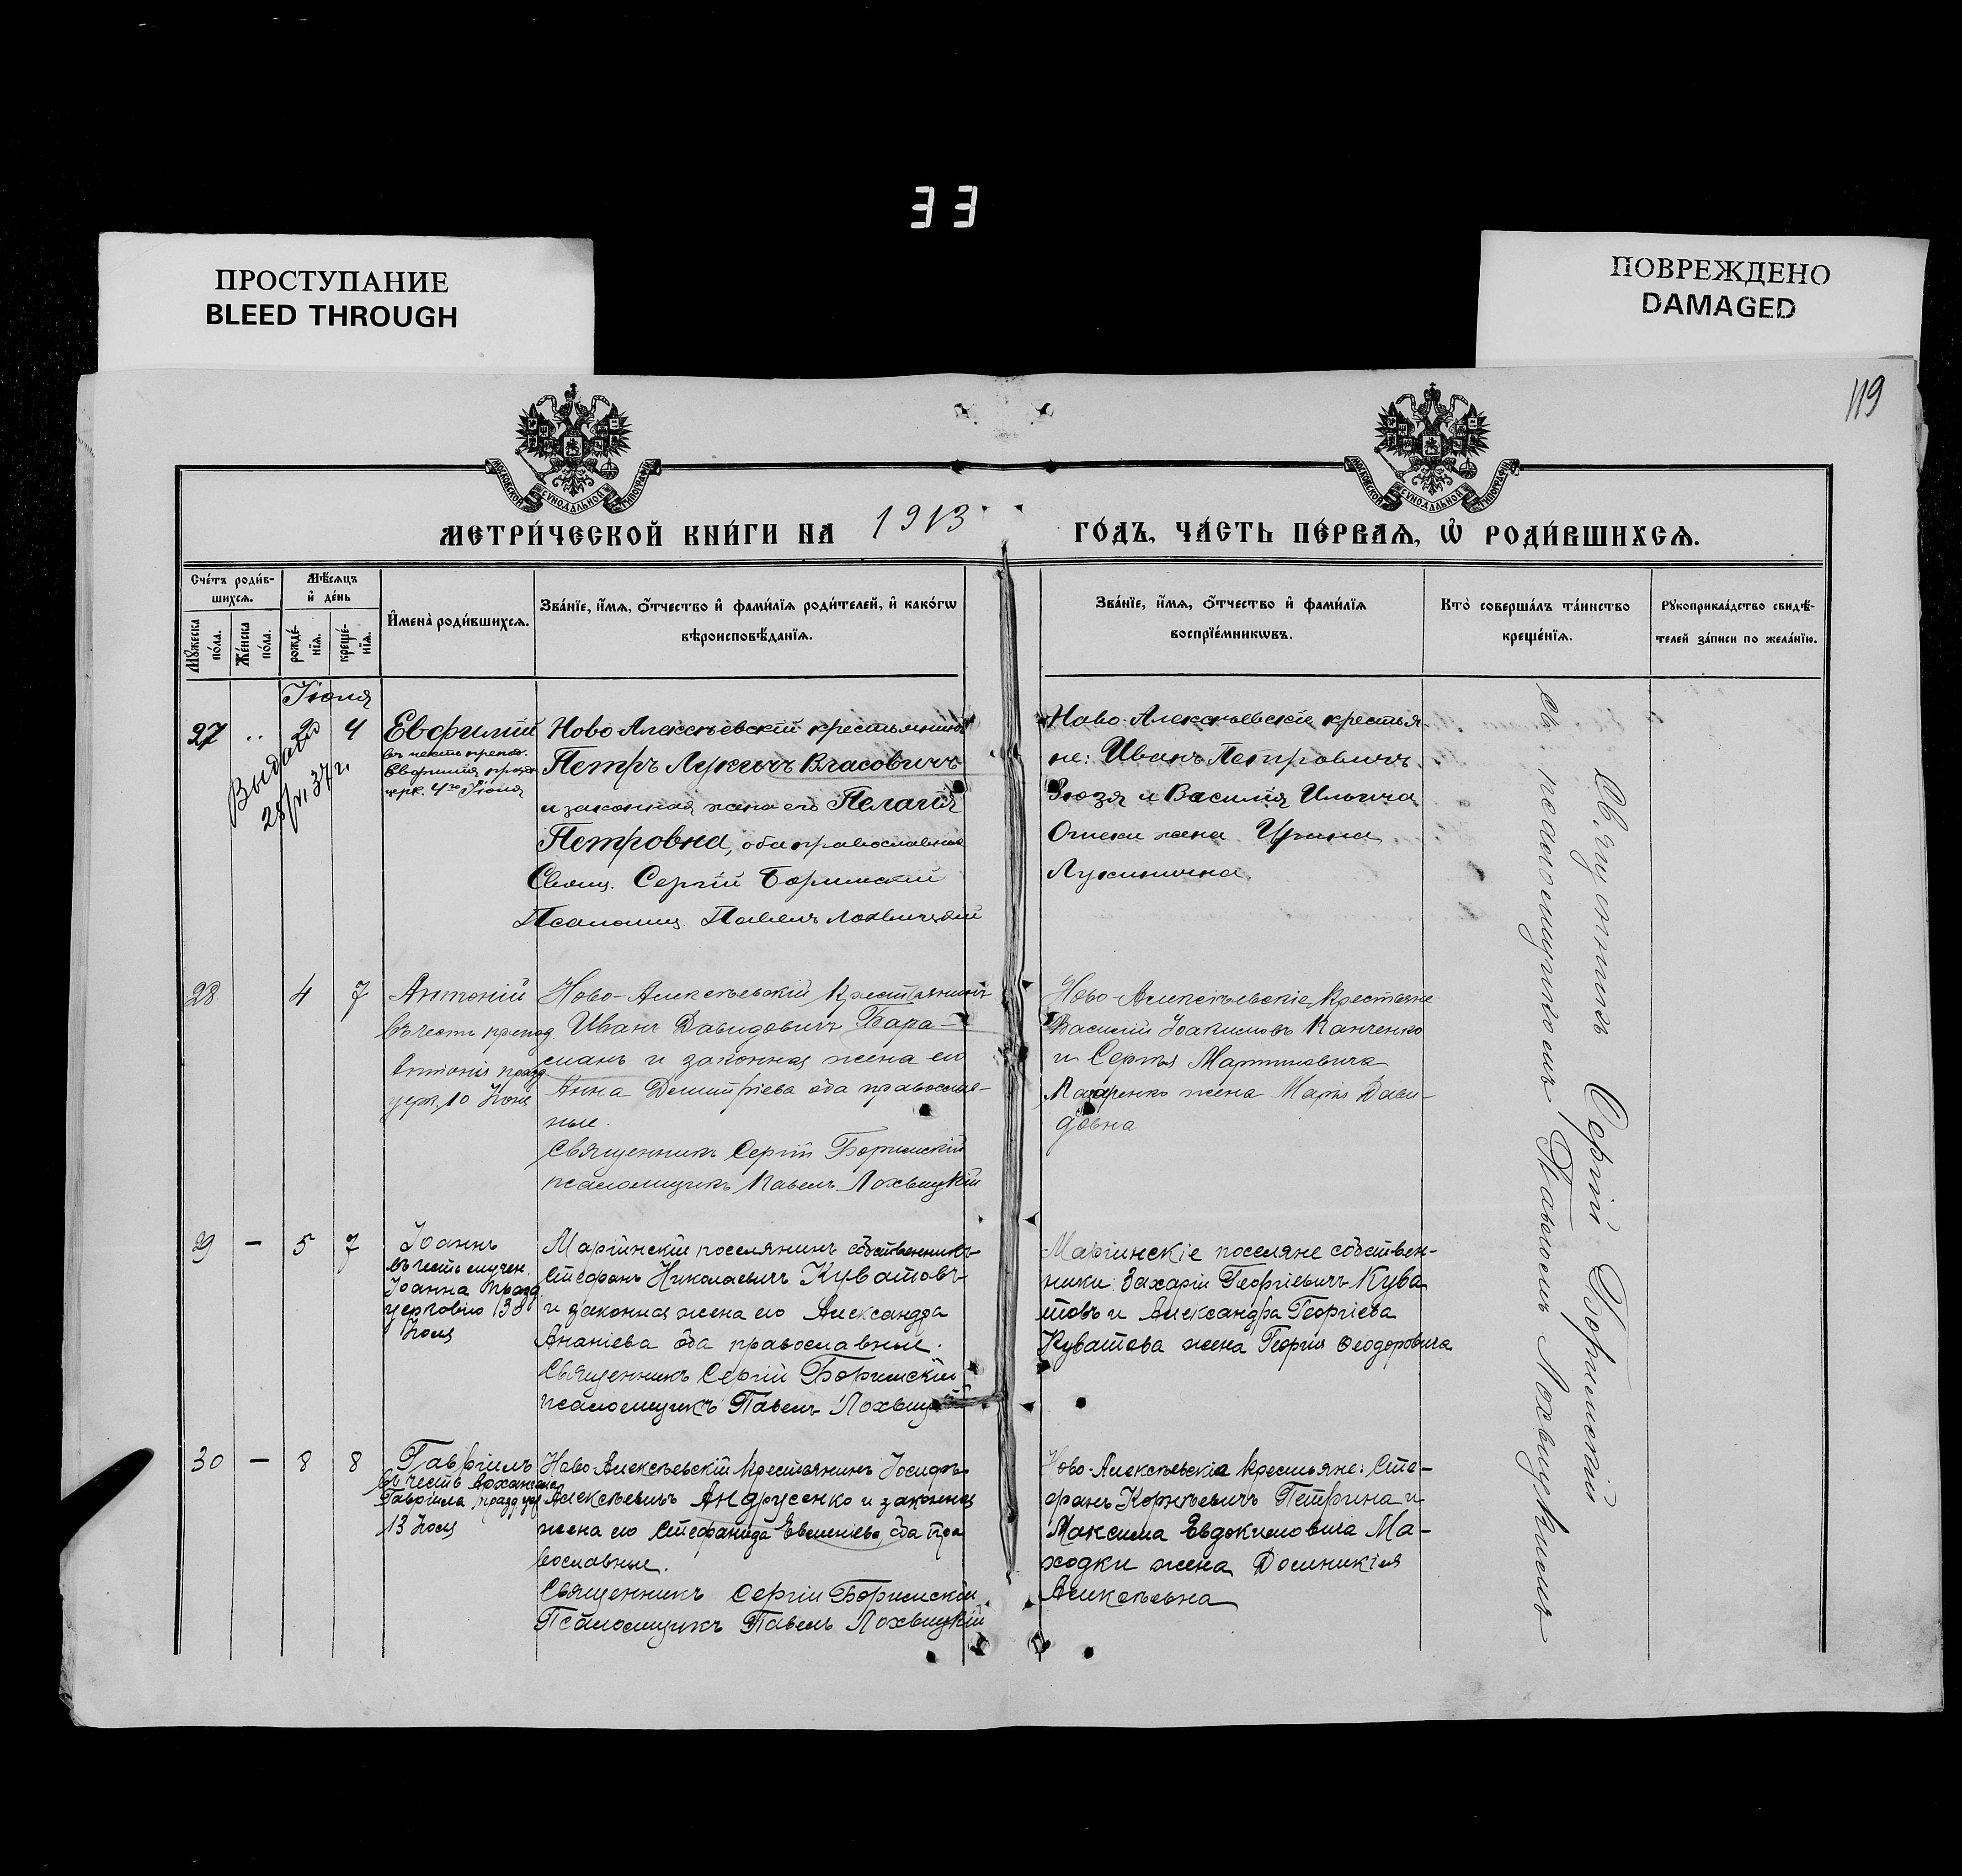 33
ПРОСТУПАНИЕ
BLEED THROUGH
ПОВРЕЖДЕНО
DAMAGED
119
МОСКОВСКОЙ СѴНОДАЛЬНОЙ ТИПОГРАФІИ
МОСКОВСКОЙ СѴНОДАЛЬНОЙ ТИПОГРАФІИ
МЕТРИ́ЧЕСКОЙ КНИ́ГИ НА 1913 ГО́ДЪ, ЧА́СТЬ ПЕ́РВАѦ, Ѡ҆ РОДИ́ВШИХСѦ.
Сче́тъ роди́в-
шихсѧ.
Мꙋ́жеска по́ла.
Же́нска по́ла.
Мѣ́сѧцъ
и҆ де́нь
рожде́-
нїѧ.
креще́-
нїѧ.
И҆мена̀ роди́вшихсѧ.
Зва́нїе, и҆́мѧ, ѻ҆́тчество и҆ фами́лїѧ роди́телей, и҆ како́гѡ
вѣроисповѣ́данїѧ.
Зва́нїе, и҆́мѧ, ѻ҆́тчество и҆ фами́лїѧ
воспрїе́мникѡвъ.
Кто̀ соверша́лъ та́инство
креще́нїѧ.
Рꙋкоприкла́дство свидѣ́-
телей за́писи по жела́нїю.
Іюля
27 .. 2 4
Выдано
28/VI 37 г.
Евфимій
въ честь препод.
Евфимія празд.
црк. 4го Іюля
Ново Алексѣевскій крестьянинъ
Петръ Лукичъ Власовичъ
и законная жена его Пелагія
Петровна, оба православные
Свящ. Сергій Боримскій
Псаломщ. Павелъ Лохвицкій
Ново-Алексѣевскіе крестья-
не: Иванъ Петровичъ
Зюзя и Василія Ильича
жена Ирина
Лукинична.
28 4 7
Антоній
въ честь препод.
Антонія празд.
церк. 10 Іюля
Ново-Алексѣевскій крестьянинъ
Иванъ Давидовичъ Бара-
манъ и законная жена его
Анна Димитріева оба православ-
ные.
Священникъ Сергій Боримскій
псаломщикъ Павелъ Лохвицкій
Ново-Алексѣевскіе крестьяне
Василій Іоакимовъ Панченко
и Сергѣя Мартиновича
жена Марія Дави-
довна
29 — 5 7
Іоаннъ
въ честь мучен.
Іоанна празд.
церковію 13
Іюля
Маріинскій поселянинъ собственникъ
Стефанъ Николаевичъ Куватовъ
и законная жена его Александра
Ананіева оба православные.
Священникъ Сергій Боримскій
псаломщикъ Павелъ Лохвицкій
Маріинскіе поселяне собствен-
ники: Захарій Георгіевичъ Кува
товъ и Александра Георгіева
Куватова жена Георгія Ѳеодоровича
30 — 8 8
Гавріилъ
въ честь Архангела
Гавріила празд. цер.
13 Іюля
Ново-Алексѣевскій крестьянинъ Іосифъ
Алексѣевичъ Андрусенко и законная
жена его Стефанида Евменіева, оба пра
вославные.
Священникъ Сергій Боримскій
Псаломщикъ Павелъ Лохвицкій
Ново-Алексѣевскіе крестьяне: Сте-
фанъ Корнѣевичъ Петрина и
Максима Евдокимовича Ма-
ходки жена Домникія
Алексѣевна
Священникъ Сергій Боримскій
съ псаломщикомъ Павломъ Лохвицкимъ